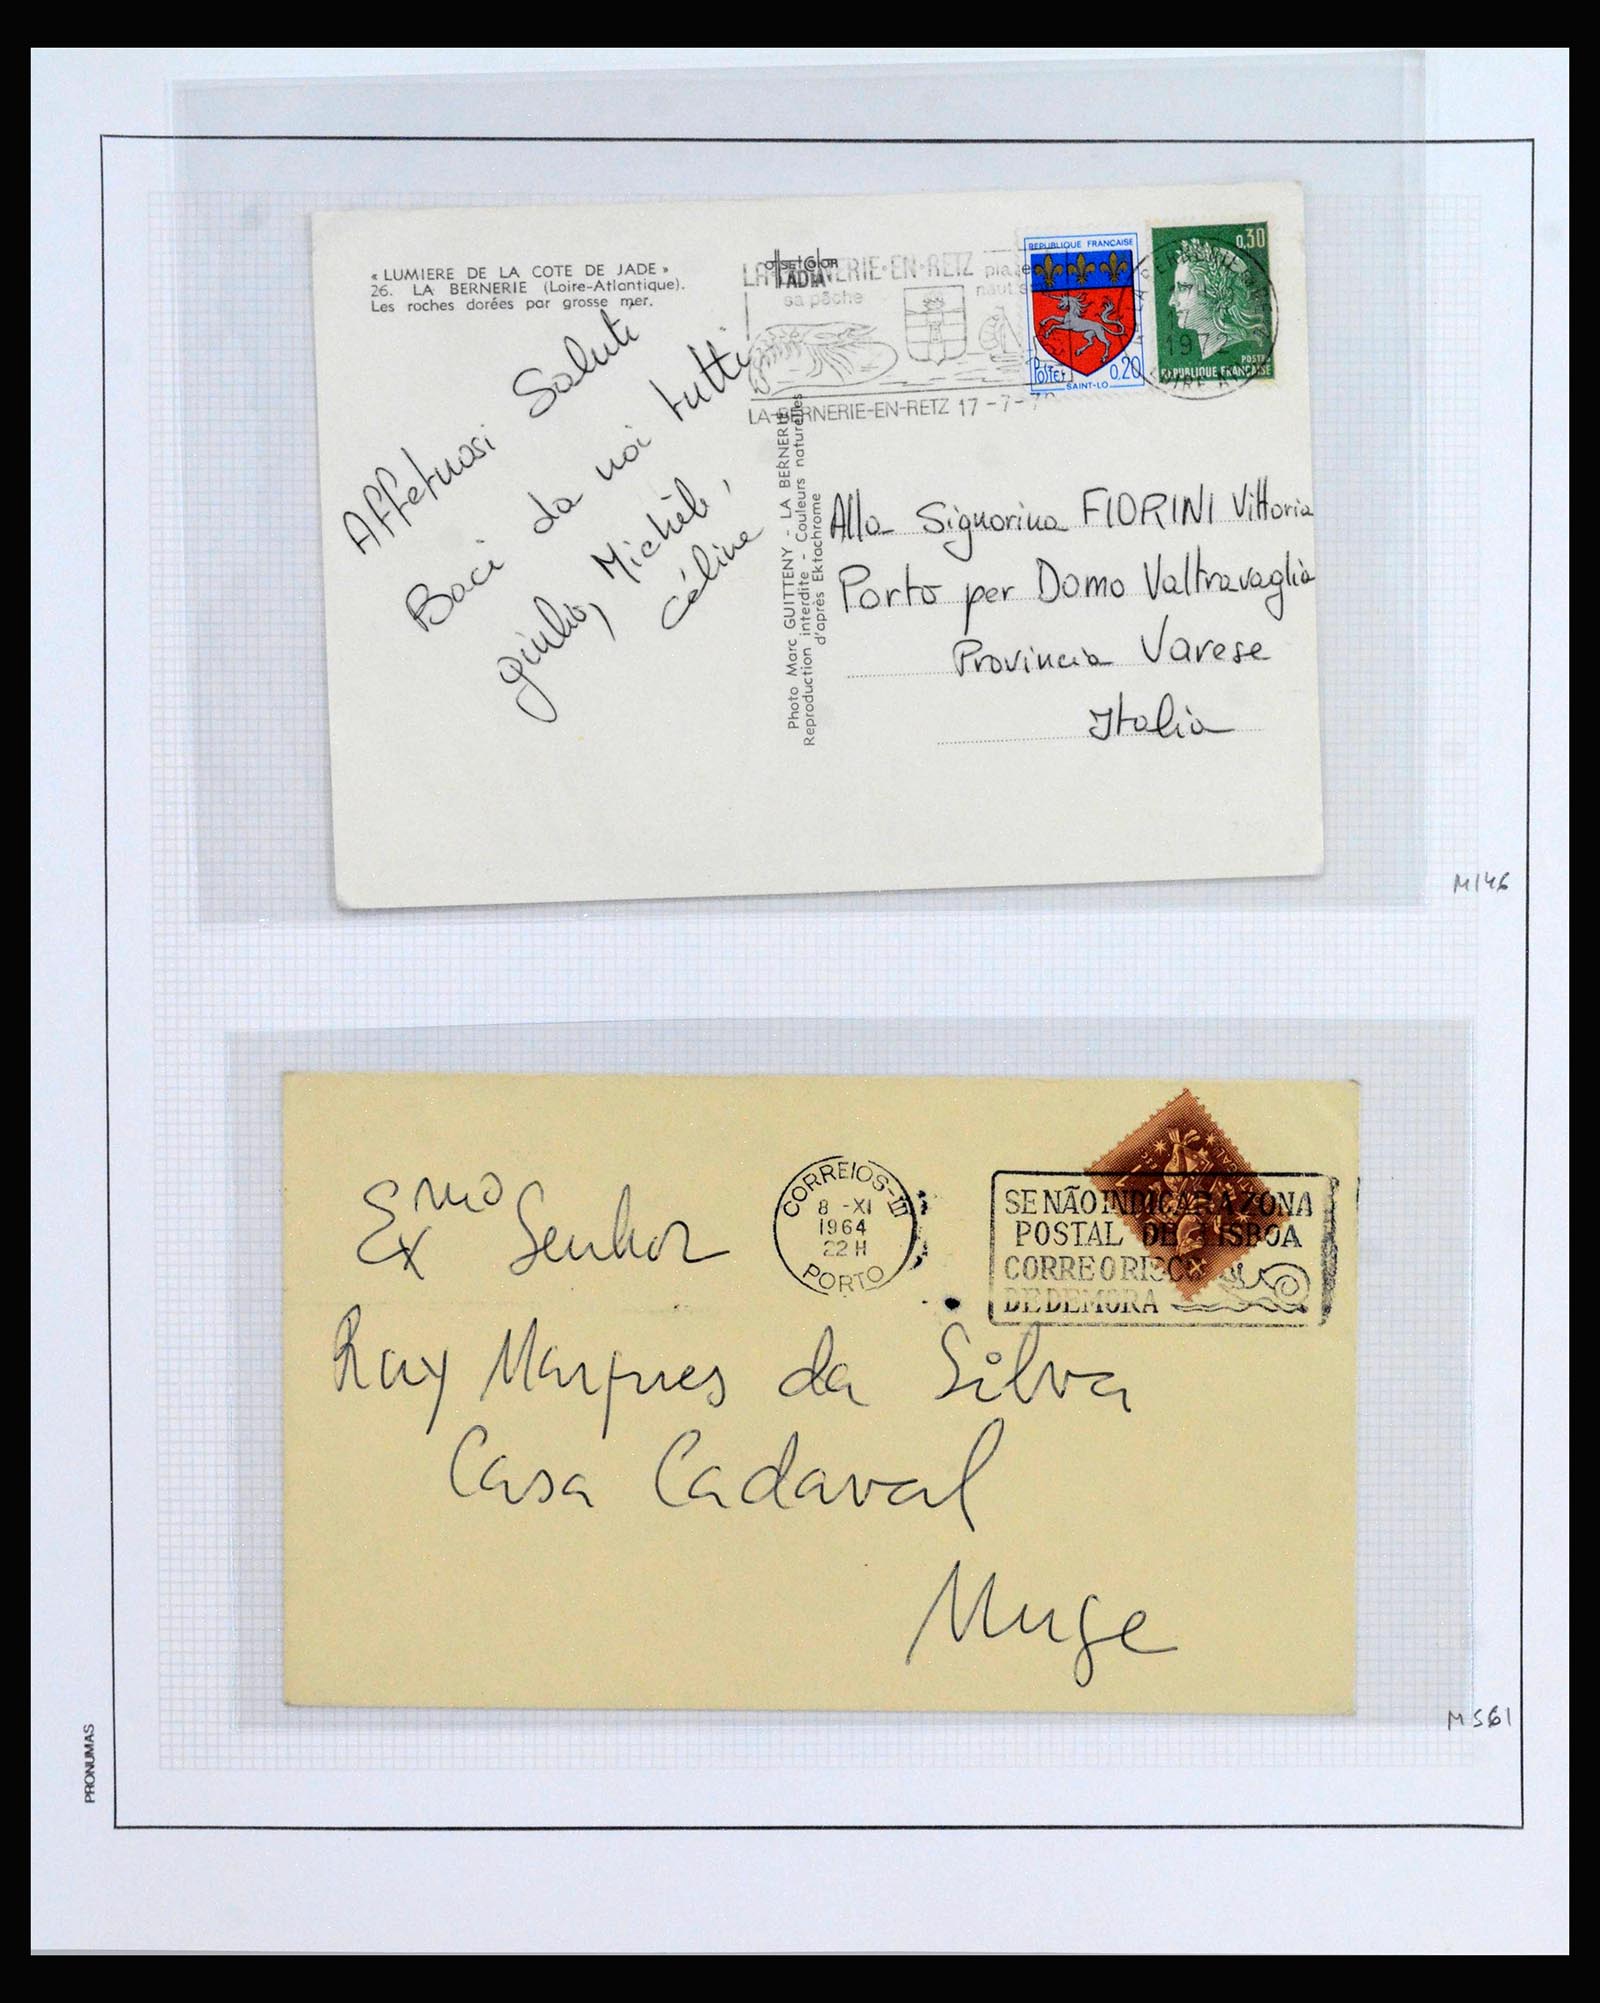 « LUMIERE DE LA COTE DE JADE »
26. LA BERNERIE (Loire-Atlantique).
Les roches dorées par grosse mer.
offset color
IADIA
LA BERNERIE-EN-RETZ
sa pêche
LA-BERNERIE-EN-RETZ 17-7-72
REPUBLIQUE FRANÇAISE
POSTES
0,20
SAINT-LO
0,30
1972
POSTES
REPUBLIQUE FRANÇAISE
Affetuosi Saluti
Baci da noi tutti
giulio, Michèle,
Céline
Photo Marc GUITTENY - LA BERNERIE
Reproduction interdite - Couleurs naturelles
d'après Ektachrome
Alla Signorina FIORINI Vittoria
Porto per Domo Valtravaglia
Provincia Varese
Italia
M146
CORREIOS-III
8 -XI
1964
22 H
PORTO
SE NÃO INDICAR A ZONA
POSTAL DE LISBOA
CORRE O RISCO
DE DEMORA
Exmo Senhor
Ruy Marques da Silva
Casa Cadaval
Muge
M561
PRONUMAS